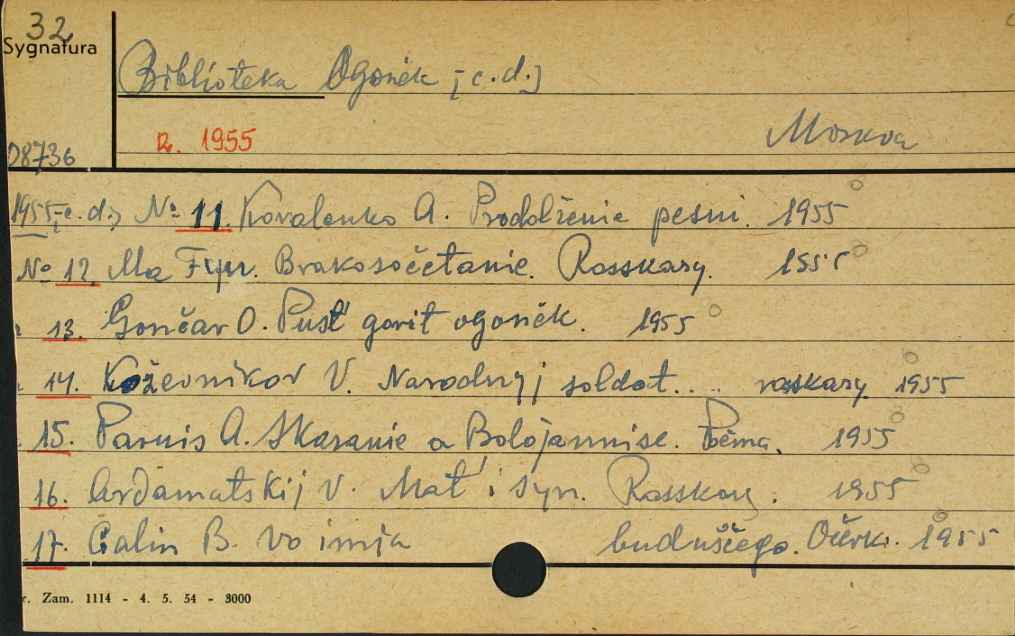 32
Sygnatura
Biblioteka Ogonëk [c.d.]
R. 1955 Moskva
D8736
1955 [c.d.] No 11. Kovalenko A. Prodolženie pesni. 1955
No 12. Ma Fyn. Brakosočetanie. Rasskazy. 1955
13. Gončar O. Pust' gorit ogonëk. 1955
14. Koževnikov V. Narodnyj soldat.... rasskazy. 1955
15. Parnis A. Skazanie o Belojannise. Poèma. 1955
16. Ardamatskij V. Mat' i syn. Rasskazy. 1955
17. Galin B. Vo imja buduščego. Očerki. 1955
r. Zam. 1114 - 4. 5. 54 - 3000